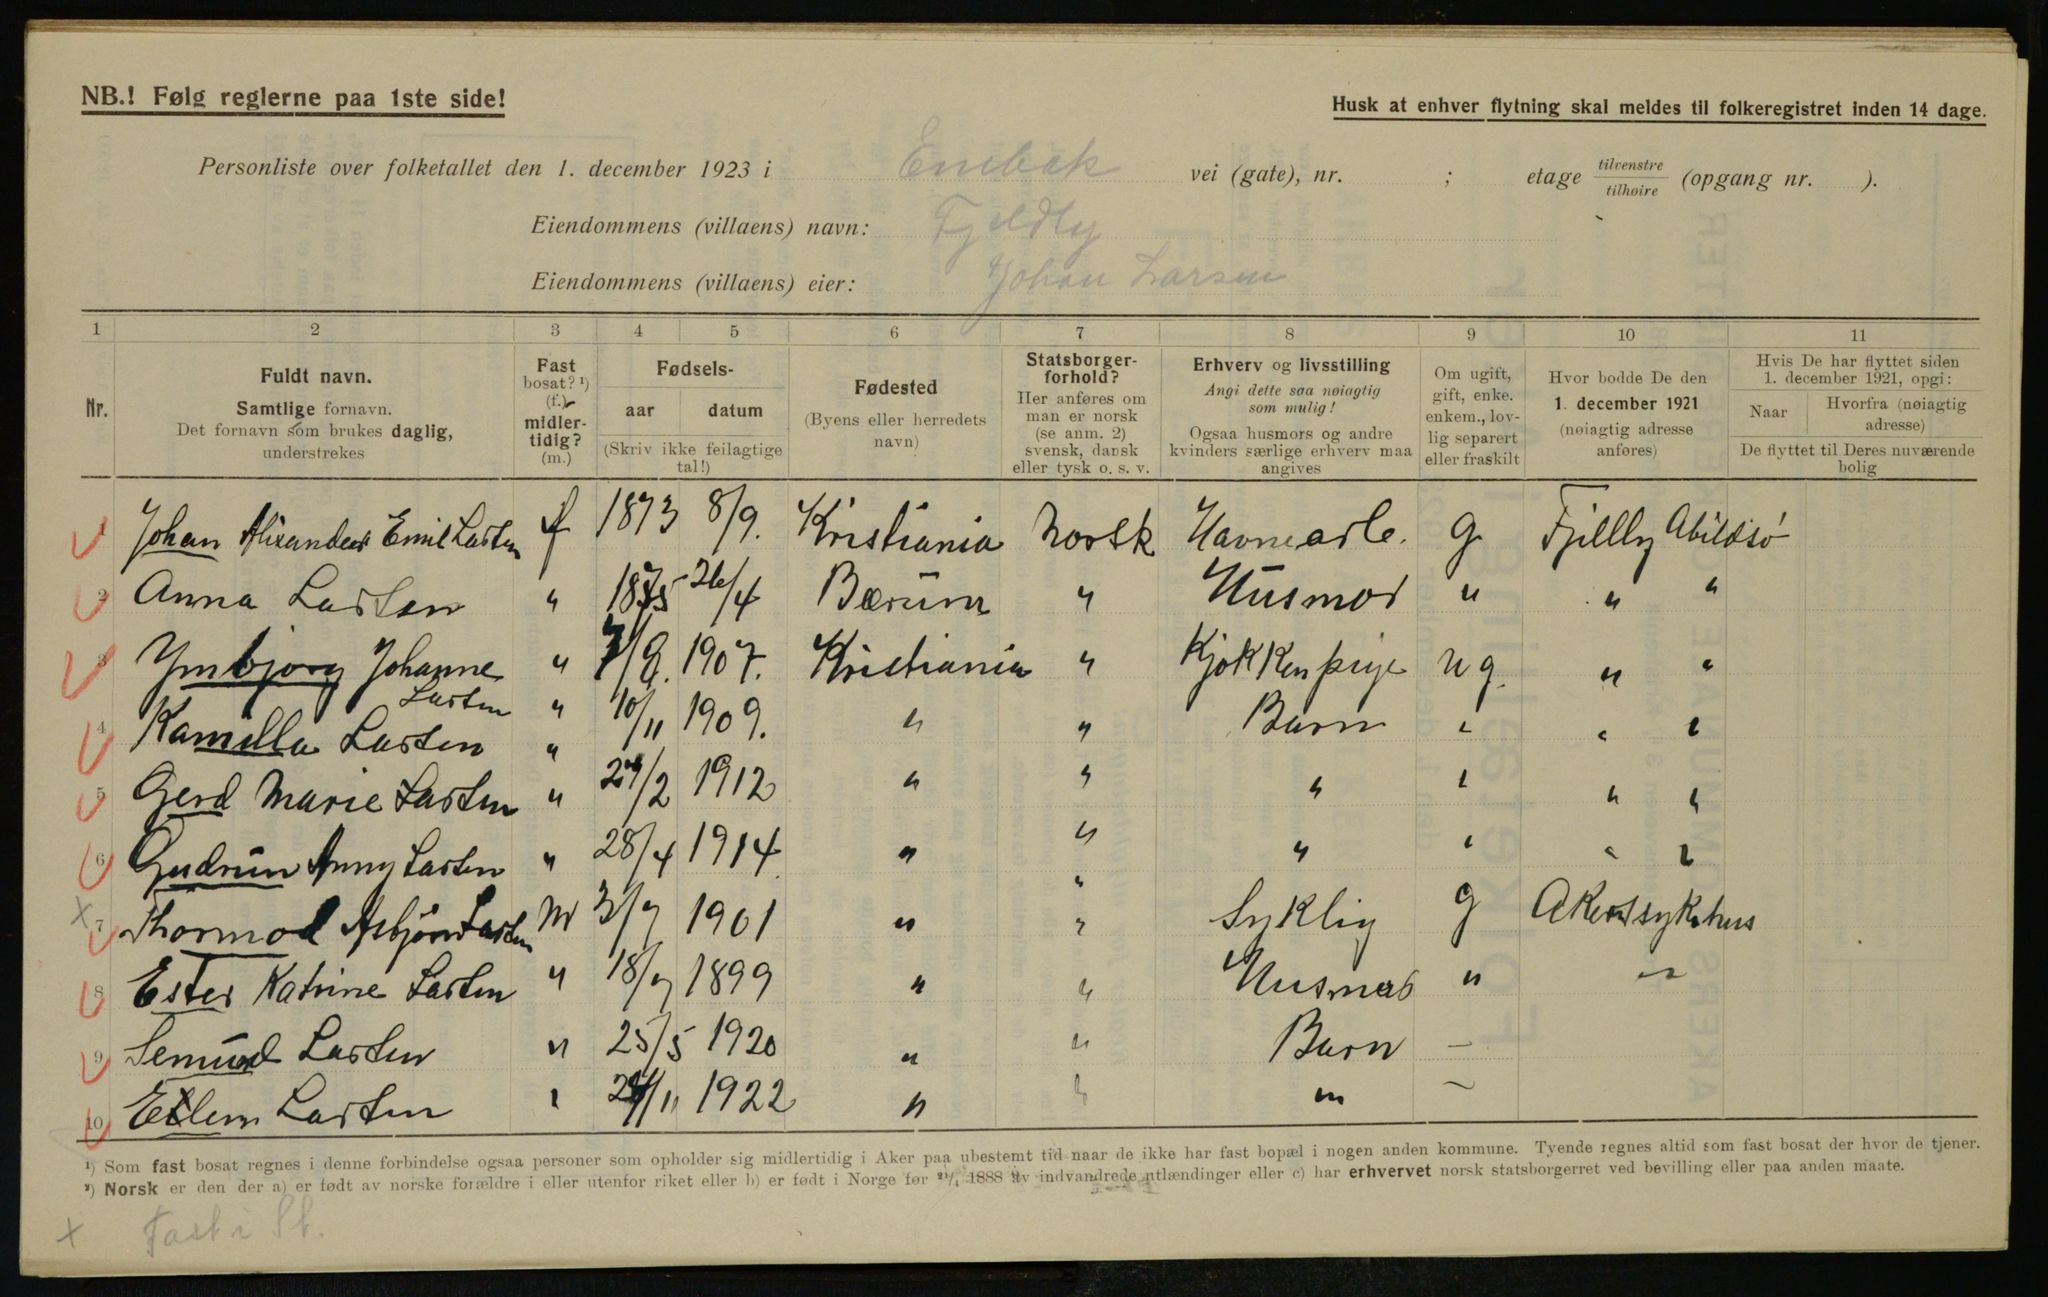 NB.! Følg reglerne paa 1ste side!
Husk at enhver flytning skal meldes til folkeregistret inden 14 dage.
Personliste over folketallet den 1. december 1923 i Enebak vei (gate), nr. ; etage tilvenstre tilhøire (opgang nr. ).
Eiendommens (villaens) navn: Fjeldly
Eiendommens (villaens) eier: Johan Larsen
1 2 3 4 5 6 7 8 9 10 11
Nr.
Fuldt navn.
Samtlige fornavn.
Det fornavn som brukes daglig,
understrekes
Fast
bosat? ¹)
(f.)
midler-
tidig?
(m.)
Fødsels-
aar datum
(Skriv ikke feilagtige
tal!)
Fødested
(Byens eller herredets
navn)
Statsborger-
forhold?
Her anføres om
man er norsk
(se anm. 2)
svensk, dansk
eller tysk o. s. v.
Erhverv og livsstilling
Angi dette saa nøiagtig
som mulig!
Ogsaa husmors og andre
kvinders særlige erhverv maa
angives
Om ugift,
gift, enke.
enkem., lov-
lig separert
eller fraskilt
Hvor bodde De den
1. december 1921
(nøiagtig adresse
anføres)
Hvis De har flyttet siden
1. december 1921, opgi:
Naar
Hvorfra (nøiagtig
adresse)
De flyttet til Deres nuværende
bolig
1 Johan Alixander Emil Larsen f 1873 8/9. Kristiania Norsk Havnearb. g Fjellly Abildsö
2 Anna Larsen " 1875 26/4 Bærum " Husmor " " "
3 Ymbjorg Johanne " 7/8. 1907. Kristiania " Kjøkkenpige ug. " "
Larsen
4 Kamilla Larsen " 10/11 1909. " " Barn " " "
5 Gerd Marie Larsen " 24/2 1912 " " " " " "
6 Gudrun Anny Larsen " 28/4 1914 " " " " " "
7 Thormod Asbjörn Larsen M 3/7 1901 " " Syklig g Akers sykehus
8 Ester Katrine Larsen " 18/7 1899 " " Husmor " "
9 Semund Larsen " 25/5 1920 " " Barn —
10 Larsen " 24/11 1922 " " " —
¹) Som fast bosat regnes i denne forbindelse ogsaa personer som opholder sig midlertidig i Aker paa ubestemt tid naar de ikke har fast bopæl i nogen anden kommune. Tyende regnes altid som fast bosat der hvor de tjener.
²) Norsk er den der a) er født av norske forældre i eller utenfor riket eller b) er født i Norge før 21/4 1888 av indvandrede utlændinger eller c) har erhvervet norsk statsborgerret ved bevilling eller paa anden maate.
x Fast i St.